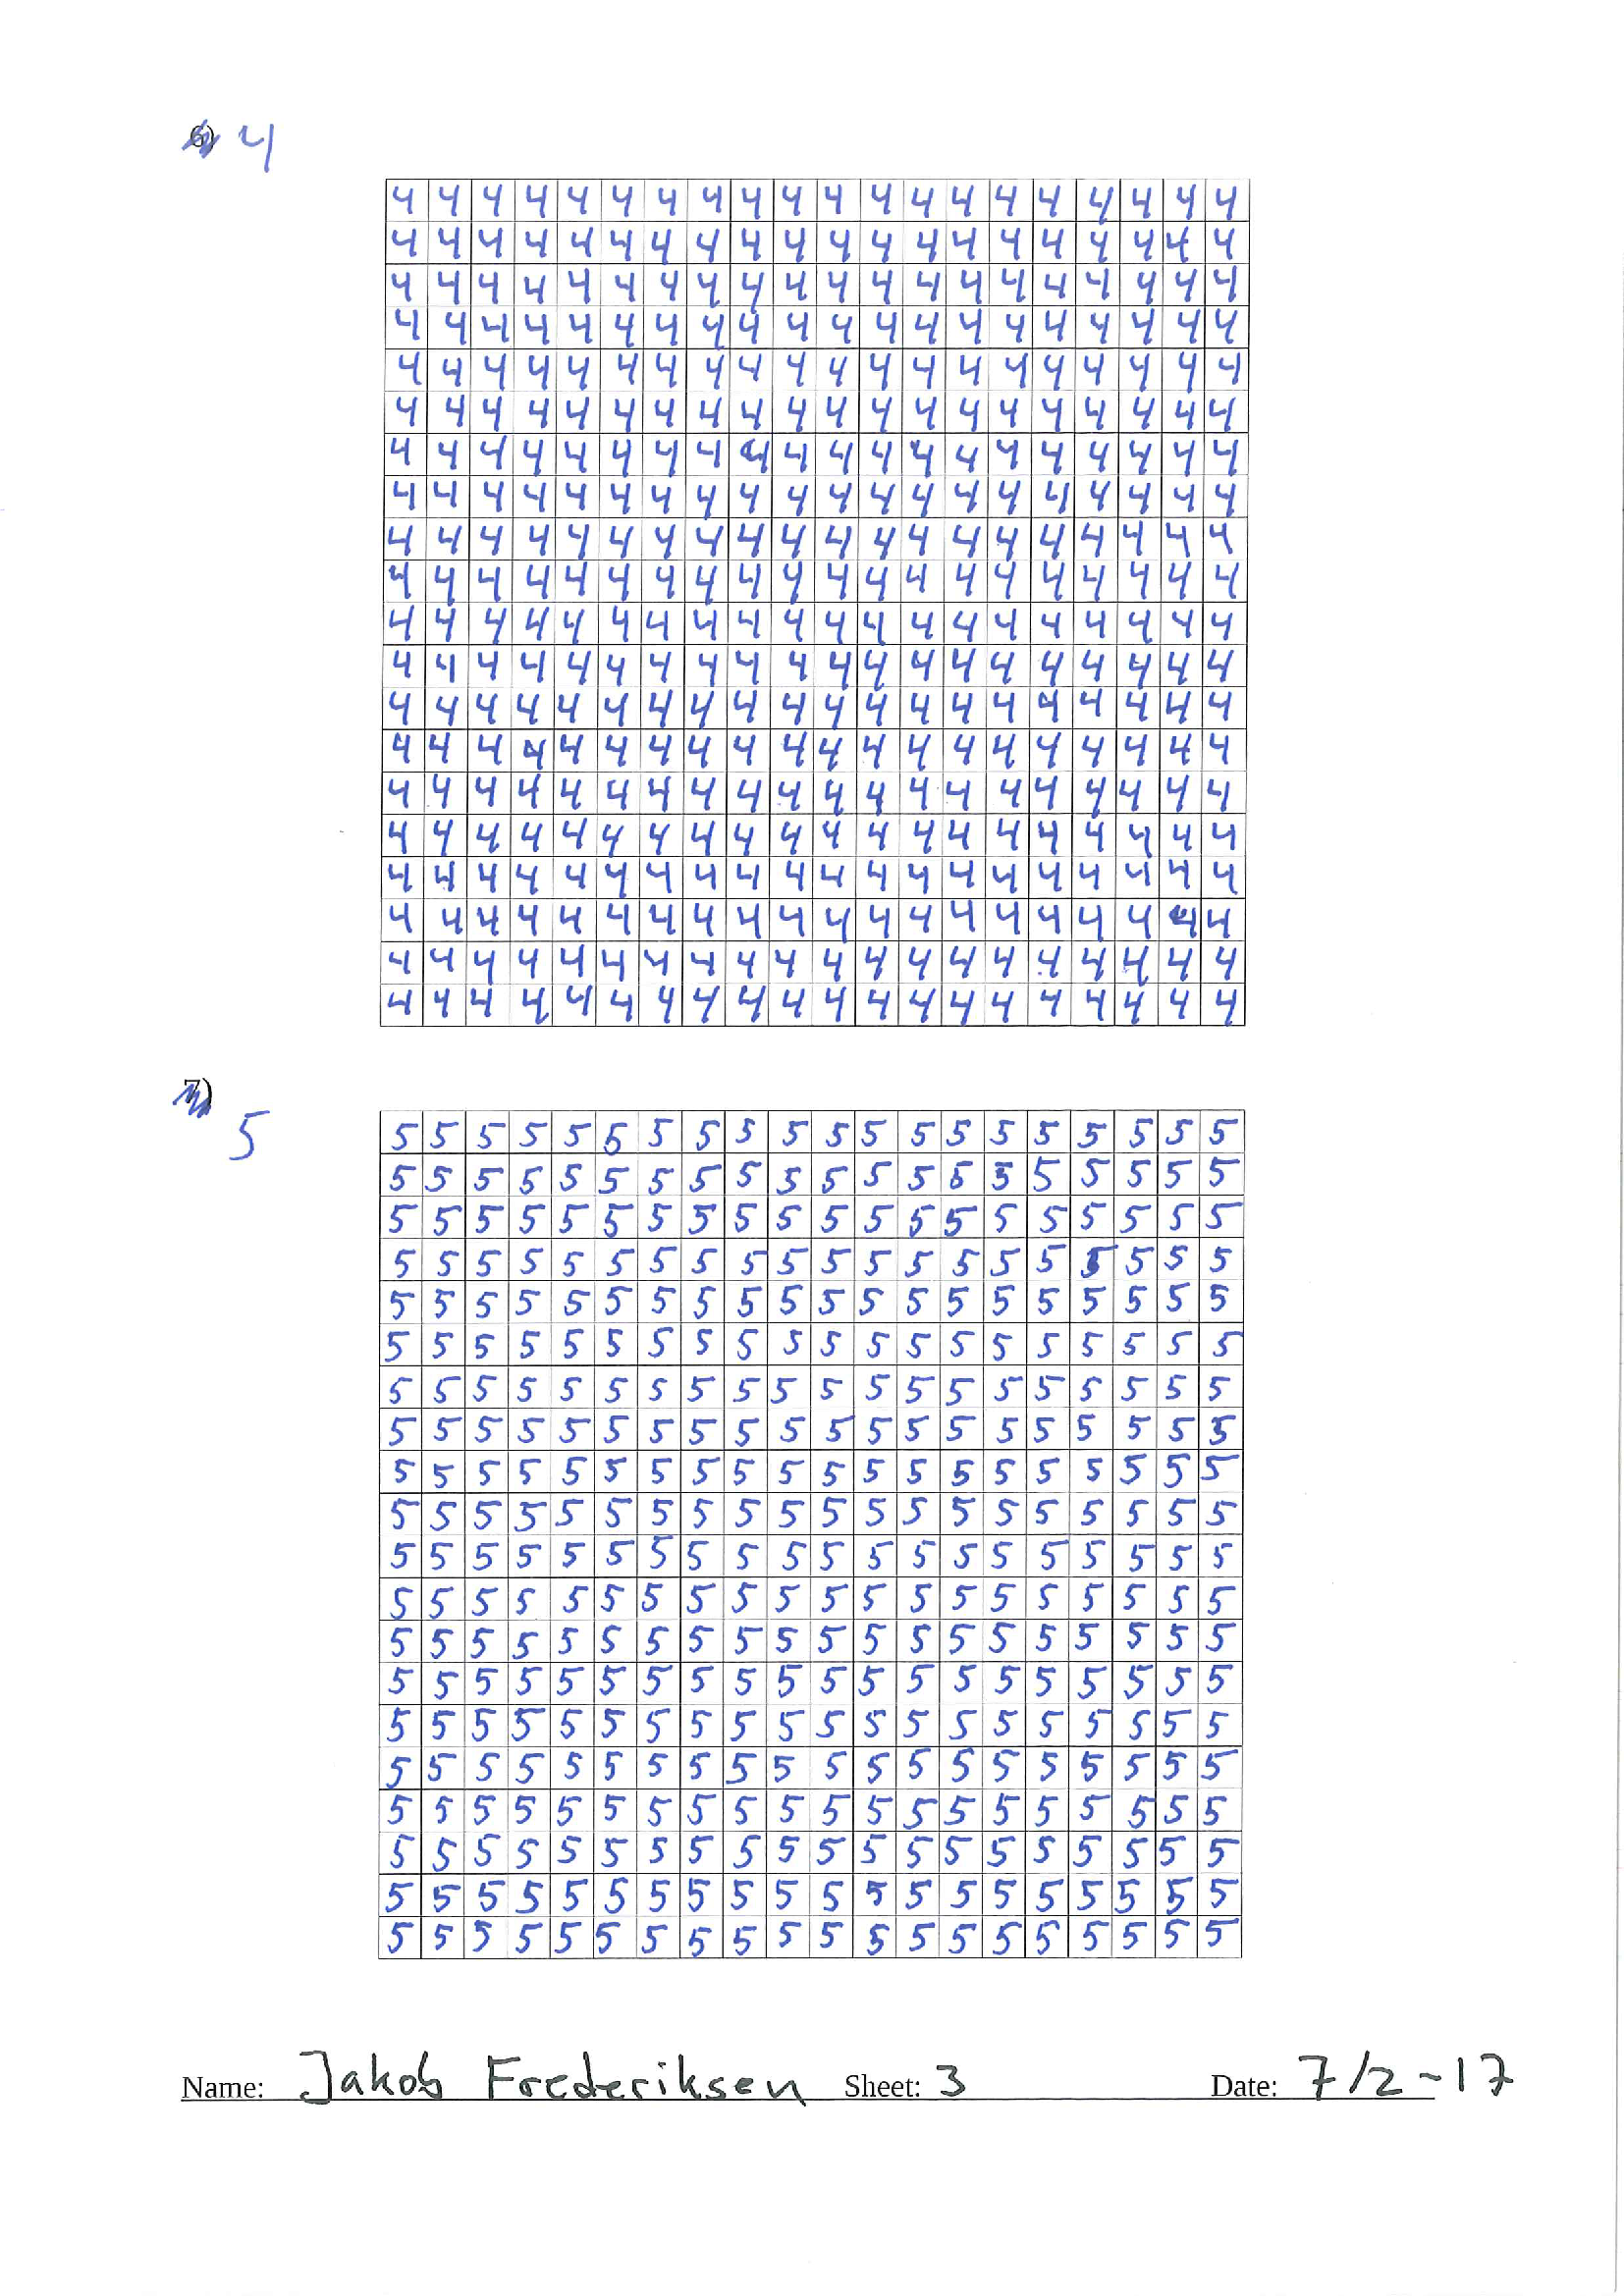 6) 4
4 4 4 4 4 4 4 4 4 4 4 4 4 4 4 4 4 4 4 4
4 4 4 4 4 4 4 4 4 4 4 4 4 4 4 4 4 4 4 4
4 4 4 4 4 4 4 4 4 4 4 4 4 4 4 4 4 4 4 4
4 4 4 4 4 4 4 4 4 4 4 4 4 4 4 4 4 4 4 4
4 4 4 4 4 4 4 4 4 4 4 4 4 4 4 4 4 4 4 4
4 4 4 4 4 4 4 4 4 4 4 4 4 4 4 4 4 4 4 4
4 4 4 4 4 4 4 4 4 4 4 4 4 4 4 4 4 4 4 4
4 4 4 4 4 4 4 4 4 4 4 4 4 4 4 4 4 4 4 4
4 4 4 4 4 4 4 4 4 4 4 4 4 4 4 4 4 4 4 4
4 4 4 4 4 4 4 4 4 4 4 4 4 4 4 4 4 4 4 4
4 4 4 4 4 4 4 4 4 4 4 4 4 4 4 4 4 4 4 4
4 4 4 4 4 4 4 4 4 4 4 4 4 4 4 4 4 4 4 4
4 4 4 4 4 4 4 4 4 4 4 4 4 4 4 4 4 4 4 4
4 4 4 4 4 4 4 4 4 4 4 4 4 4 4 4 4 4 4 4
4 4 4 4 4 4 4 4 4 4 4 4 4 4 4 4 4 4 4 4
4 4 4 4 4 4 4 4 4 4 4 4 4 4 4 4 4 4 4 4
4 4 4 4 4 4 4 4 4 4 4 4 4 4 4 4 4 4 4 4
4 4 4 4 4 4 4 4 4 4 4 4 4 4 4 4 4 4 4 4
4 4 4 4 4 4 4 4 4 4 4 4 4 4 4 4 4 4 4 4
4 4 4 4 4 4 4 4 4 4 4 4 4 4 4 4 4 4 4 4
7) 5
5 5 5 5 5 5 5 5 5 5 5 5 5 5 5 5 5 5 5 5
5 5 5 5 5 5 5 5 5 5 5 5 5 5 5 5 5 5 5 5
5 5 5 5 5 5 5 5 5 5 5 5 5 5 5 5 5 5 5 5
5 5 5 5 5 5 5 5 5 5 5 5 5 5 5 5 5 5 5 5
5 5 5 5 5 5 5 5 5 5 5 5 5 5 5 5 5 5 5 5
5 5 5 5 5 5 5 5 5 5 5 5 5 5 5 5 5 5 5 5
5 5 5 5 5 5 5 5 5 5 5 5 5 5 5 5 5 5 5 5
5 5 5 5 5 5 5 5 5 5 5 5 5 5 5 5 5 5 5 5
5 5 5 5 5 5 5 5 5 5 5 5 5 5 5 5 5 5 5 5
5 5 5 5 5 5 5 5 5 5 5 5 5 5 5 5 5 5 5 5
5 5 5 5 5 5 5 5 5 5 5 5 5 5 5 5 5 5 5 5
5 5 5 5 5 5 5 5 5 5 5 5 5 5 5 5 5 5 5 5
5 5 5 5 5 5 5 5 5 5 5 5 5 5 5 5 5 5 5 5
5 5 5 5 5 5 5 5 5 5 5 5 5 5 5 5 5 5 5 5
5 5 5 5 5 5 5 5 5 5 5 5 5 5 5 5 5 5 5 5
5 5 5 5 5 5 5 5 5 5 5 5 5 5 5 5 5 5 5 5
5 5 5 5 5 5 5 5 5 5 5 5 5 5 5 5 5 5 5 5
5 5 5 5 5 5 5 5 5 5 5 5 5 5 5 5 5 5 5 5
5 5 5 5 5 5 5 5 5 5 5 5 5 5 5 5 5 5 5 5
5 5 5 5 5 5 5 5 5 5 5 5 5 5 5 5 5 5 5 5
Name: Jakob Frederiksen Sheet: 3 Date: 7/2-17